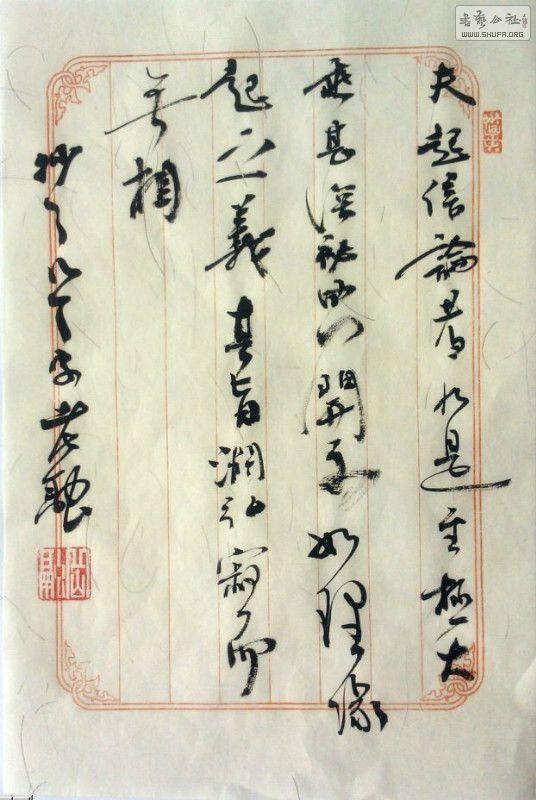 書藝公社
WWW.SHUFA.ORG
夫起信論者乃是至極大
乘甚深秘典開示如理緣
起之義其旨淵弘寂而
無相
抄